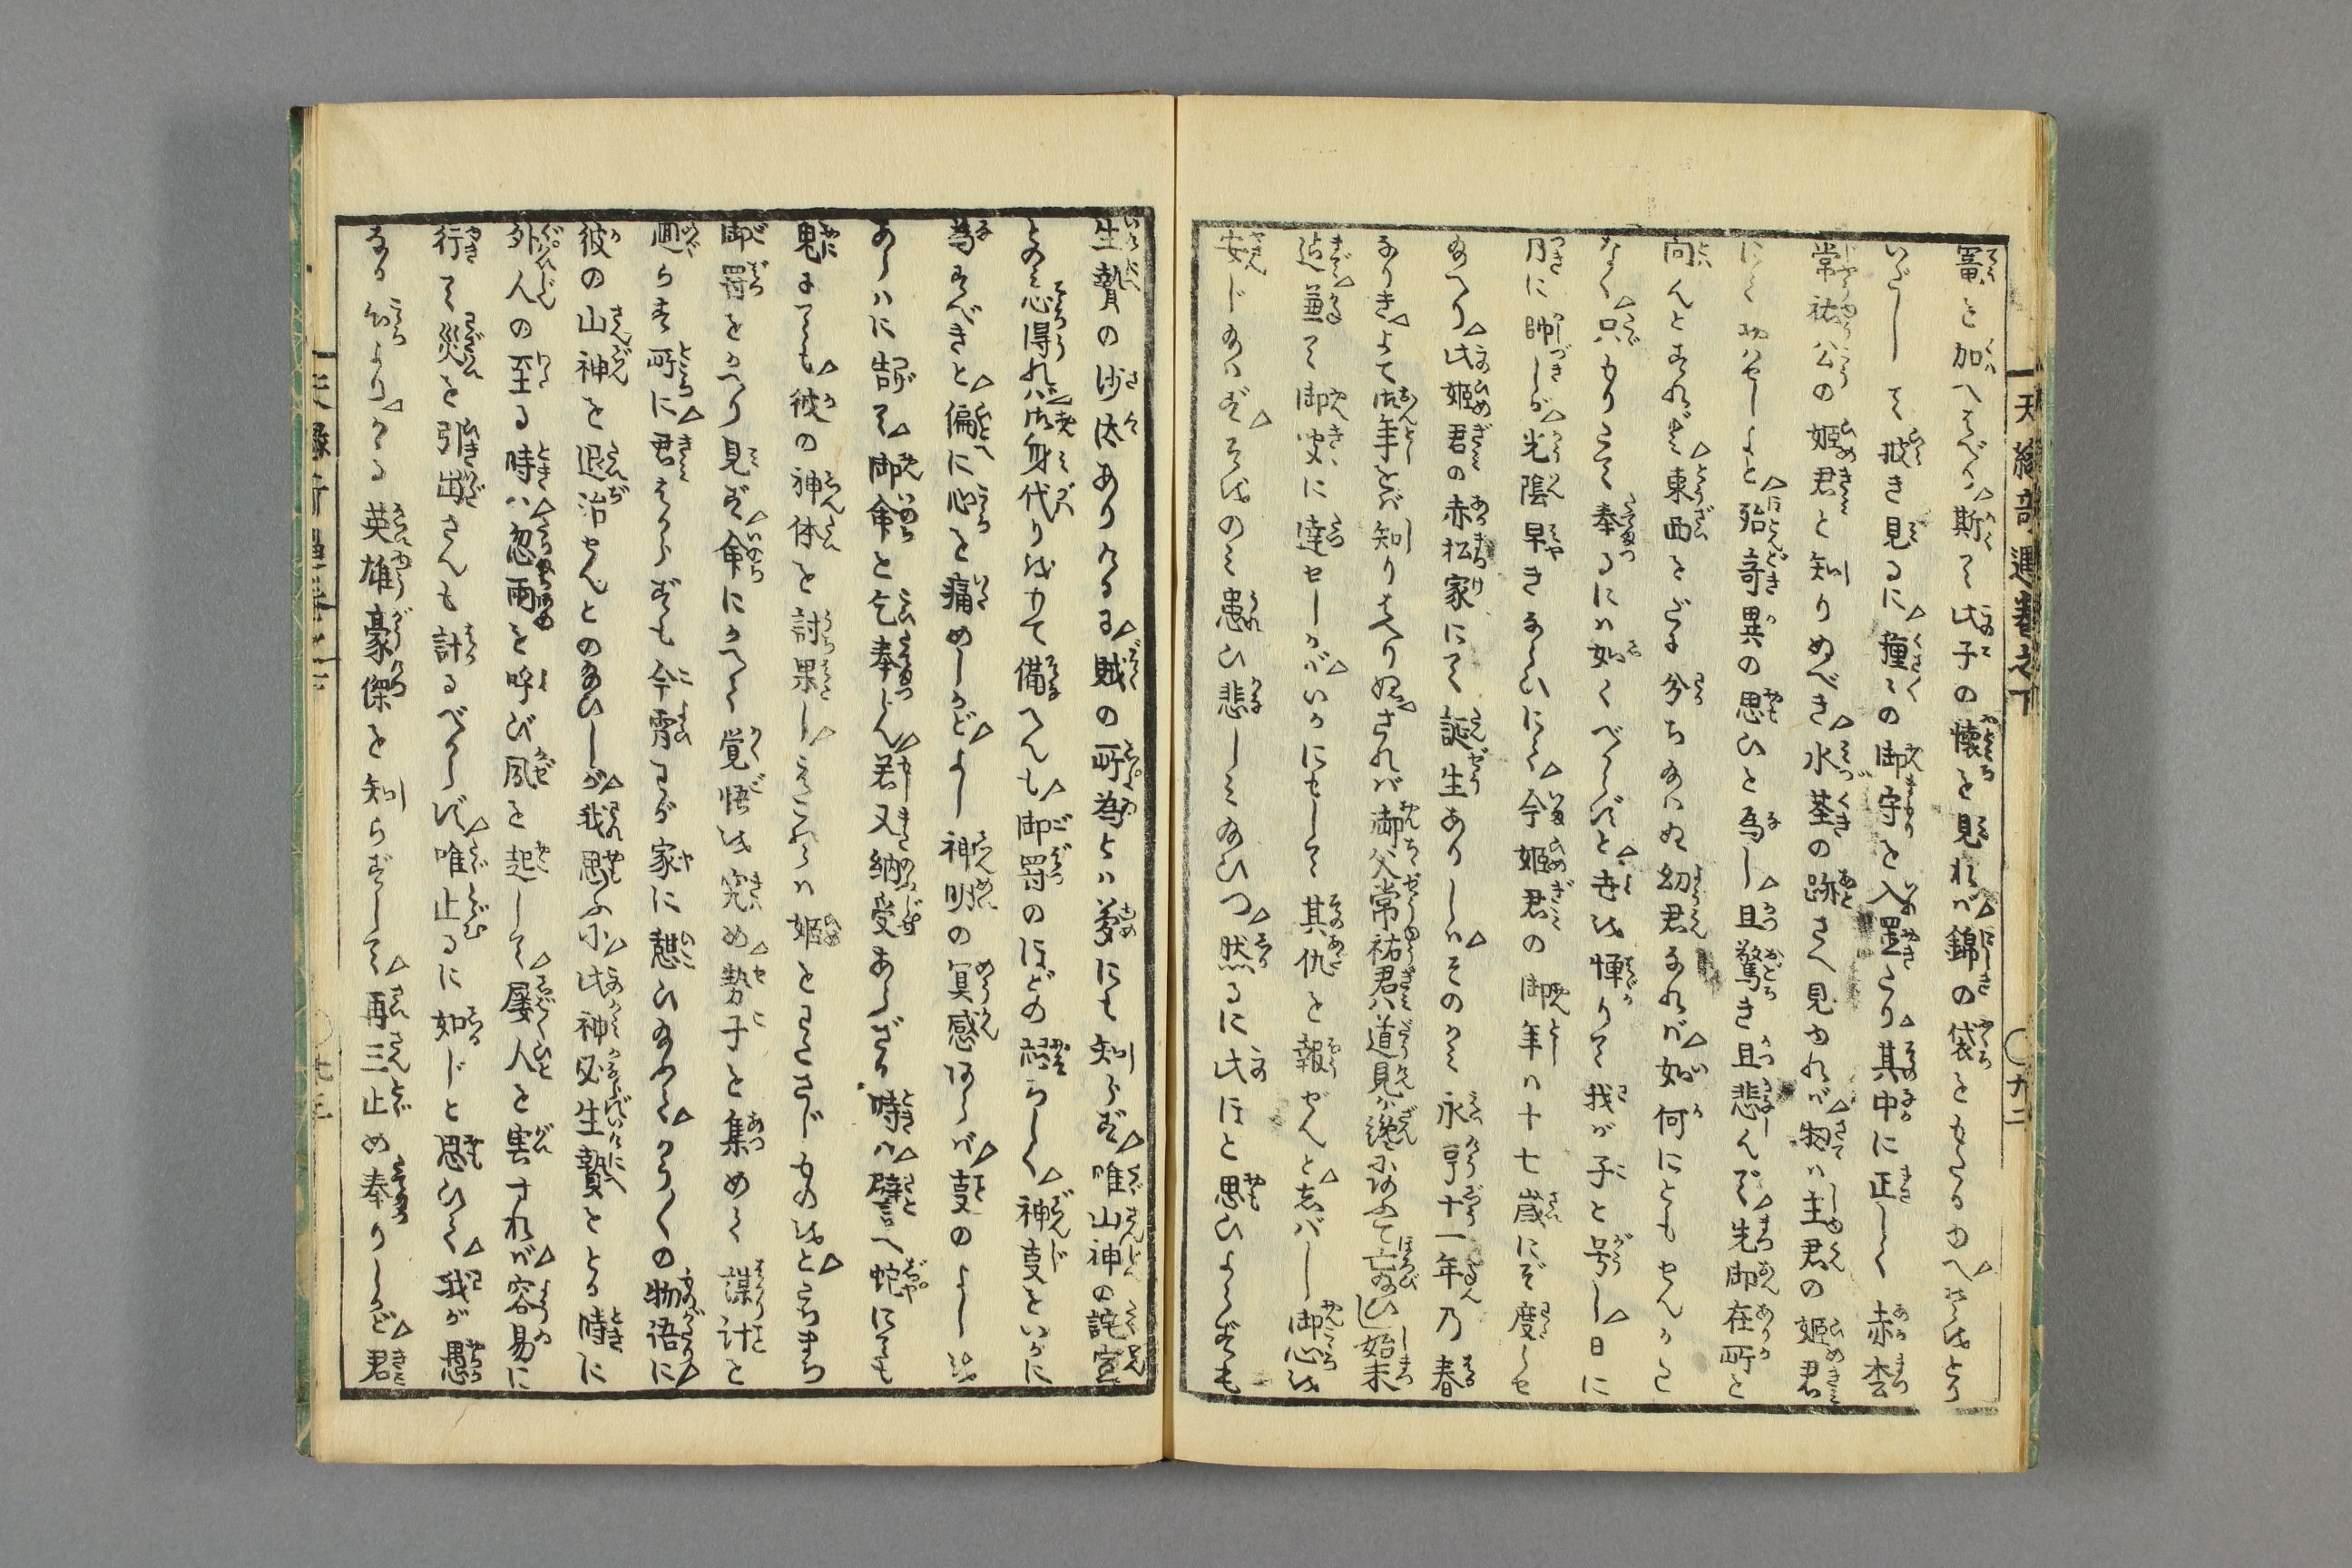 天縁奇遇巻之下
〇九二
寵を加へはべり斯て此子の懐を見れば錦の袋をもたるゆへそをとり
いだして披き見るに種〻の御守を入置たり其中に正しく赤松
常祐公の姫君と知りぬべき水茎の跡さへ見ゆれば扨は主君の姫君
にておはせしよと殆奇異の思ひを為し且驚き且悲んで先御在所を
向んとすれども東西をだに分ちたまはぬ幼君なれば如何にともせんかた
なく只もりそて奉るには如くべからずと世を憚りて我が子と号し日に
月に歸しが光陰早きならひにて今姫君の御年は十七歳にぞ度らせ
たまへり此姫君の赤松家にて誕生ありしはそのかみ永享十一年乃春
なりきよて御年をば知りはべりぬされば御父常祐君は道見が讒にあふて亡たまひし始末
迠兼て御史に達せしかばいかにもして其仇を報ぜんとしばし御心を
安んじたまはずそをのみ患ひ悲しみたまひつ然るに此ほと思ひよらずも
生贄の沙汰ありけるる賊の所為とは夢にも知らず唯山神の託宣
とのみ心得れば御身代りをたて備へんも御罸のほどの恐らしく神叓をいかに
為すべきと偏に心を痛めしかどよし神明の冥感あらば叓のよしを
あらはに告て御命を乞奉らん若又納受あらざる時は譬へ蛇にても
鬼にても彼の神体を討果しこれらは姫をわたさじものをとたちまち
御罸をかへり見ず命にかへて覚悟を究め勢子を集めて謀計を
廻らす所に君はからずも今宵わが家に憩ひたまひてかう〳〵の物語に
彼の山神を退治せんとのたまひしが我思ふに此神必生贄をとる時に
外人の至る時は忽雨を呼び風を起して屡人を害すれば容易に
行て災を引出さんも計るべからず唯止るに如じと思ひて我が愚
なる心よりかゝる英雄豪傑を知らずして再三止め奉りしかど君
〇七三